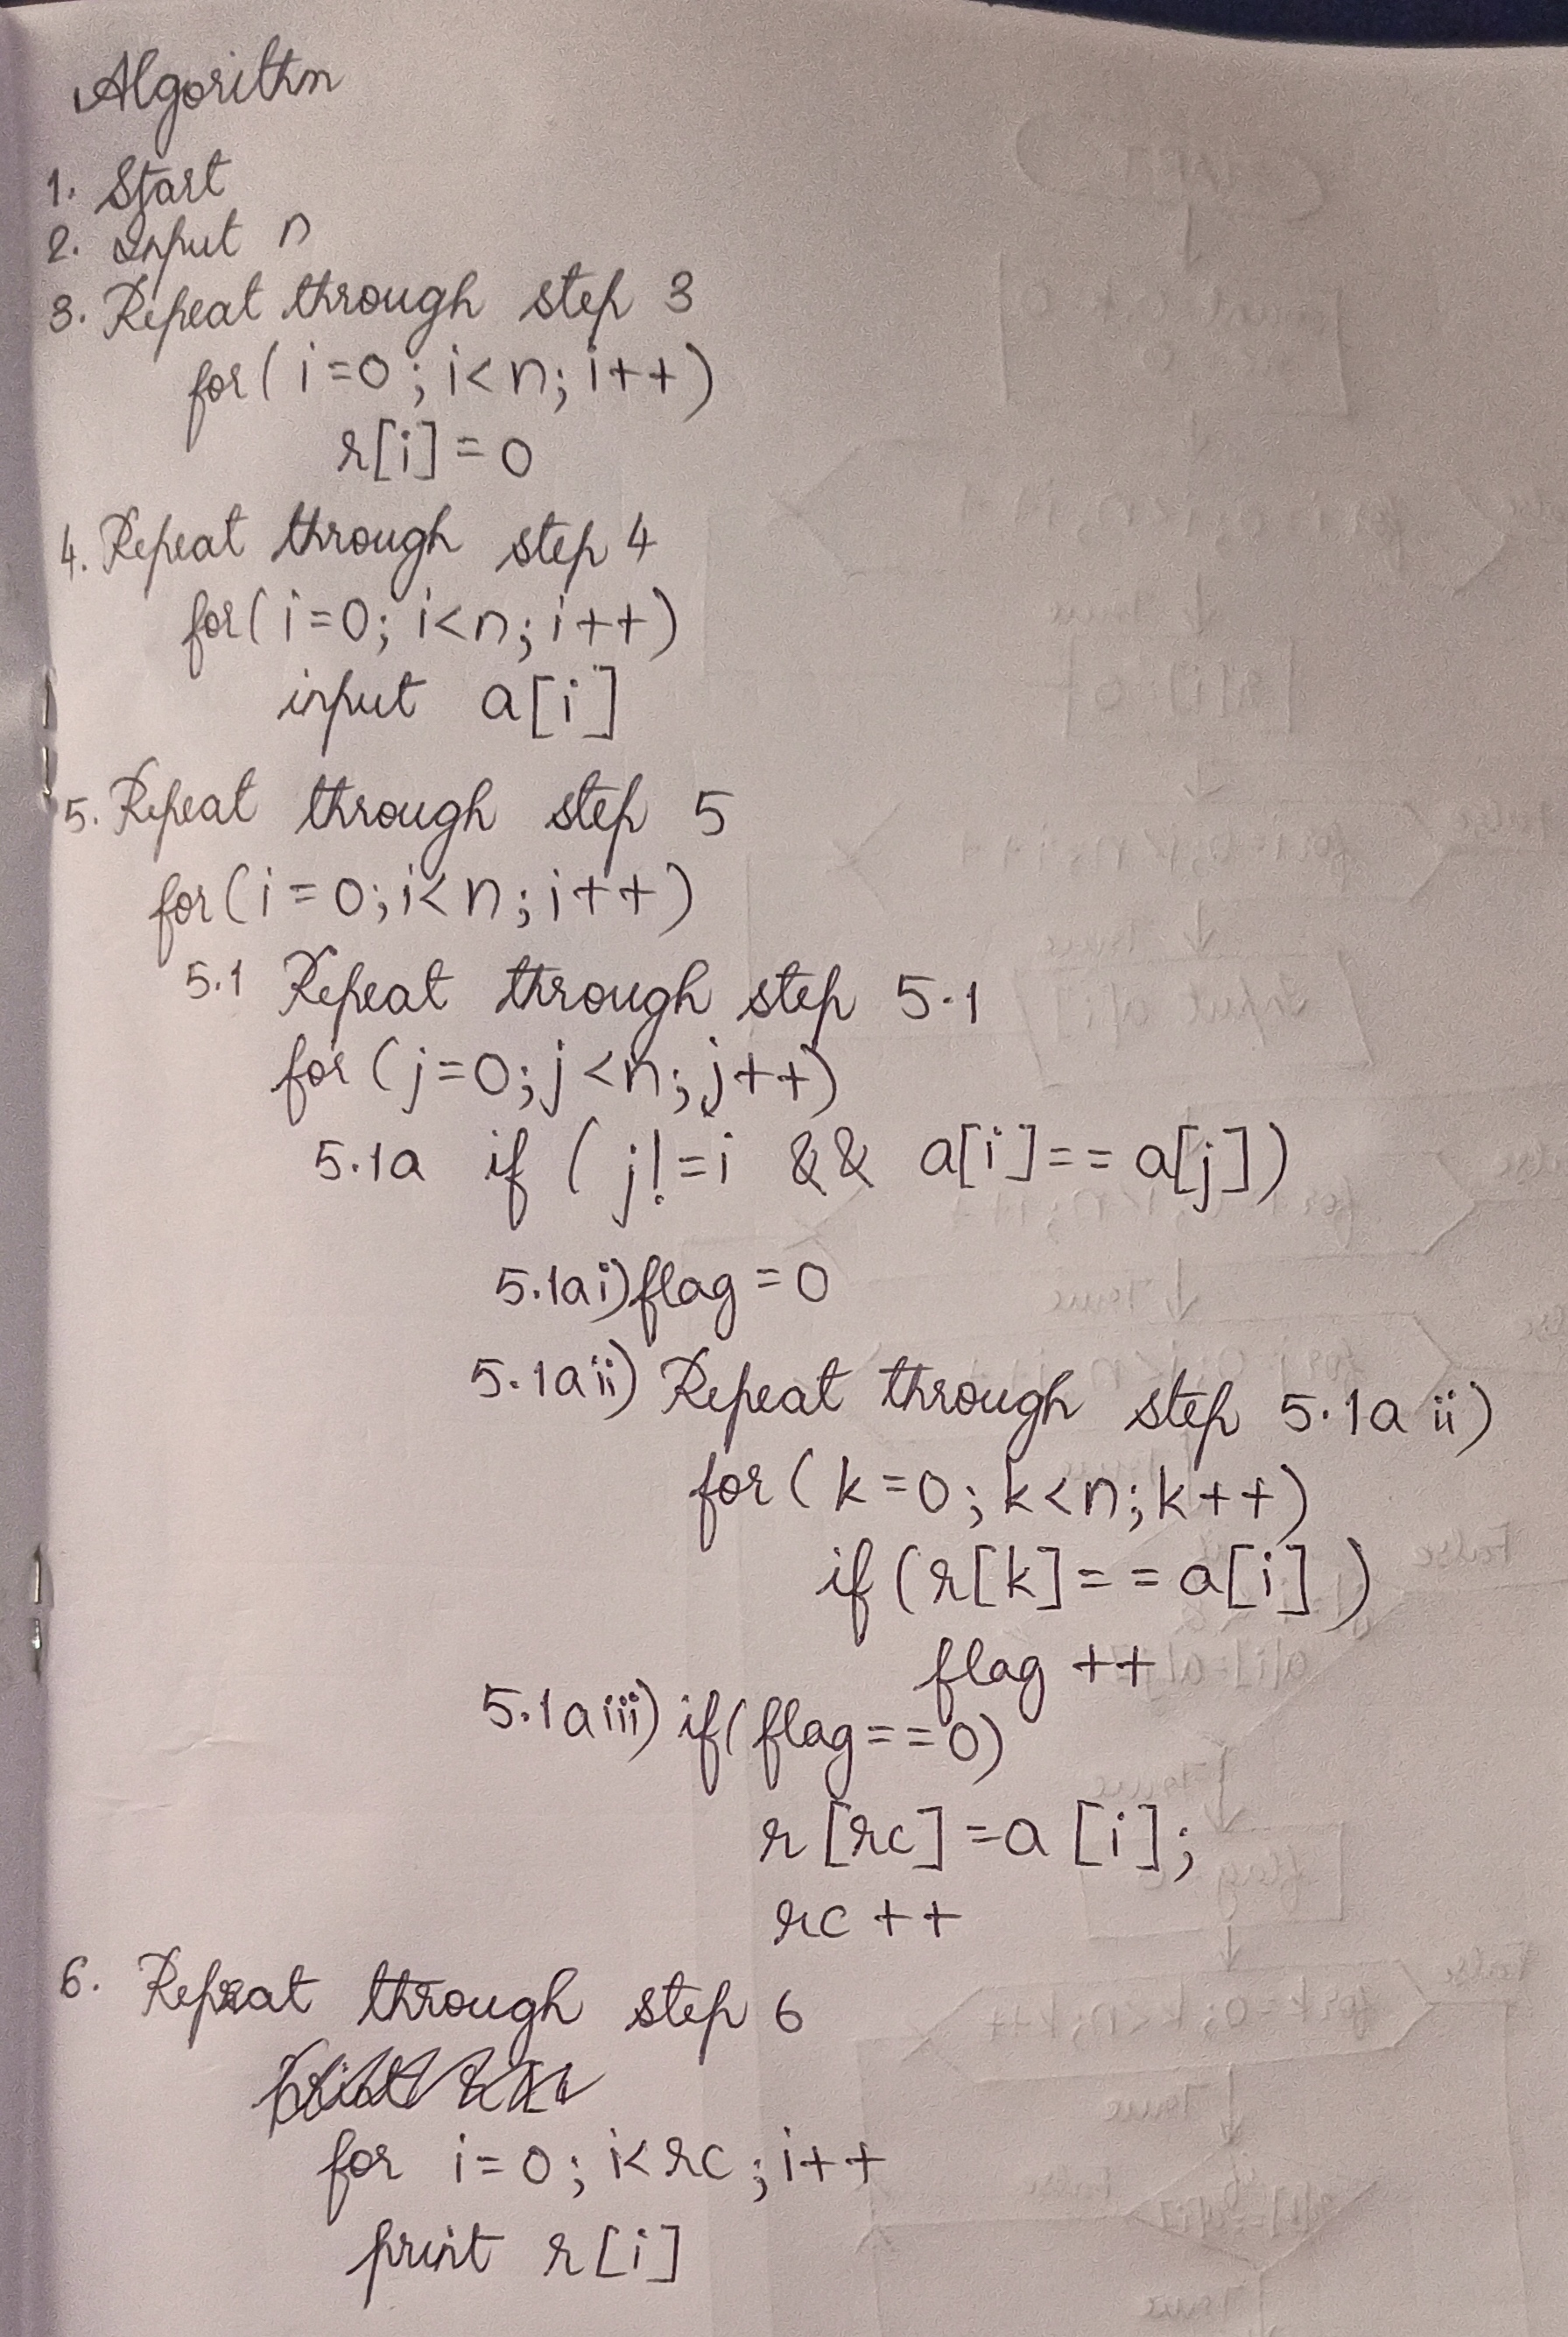 Algorithm
1. Start
2. Input n
3. Repeat through step 3
for( i=0; i<n; i++)
r[i]=0
4. Repeat through step 4
for( i=0; i<n; i++)
input a[i]
5. Repeat through step 5
for(i=0;i<n;i++)
5.1 Repeat through step 5.1
for (j=0;j<n;j++)
5.1a if ( j!=i && a[i]==a[j])
5.1a i) flag =0
5.1a ii) Repeat through step 5.1a ii)
for( k=0; k<n;k++)
if(r[k]==a[i])
flag ++
5.1a iii) if(flag==0)
r[rc]=a[i];
rc ++
6. Repeat through step 6
for i=0; i<rc; i++
print r[i]